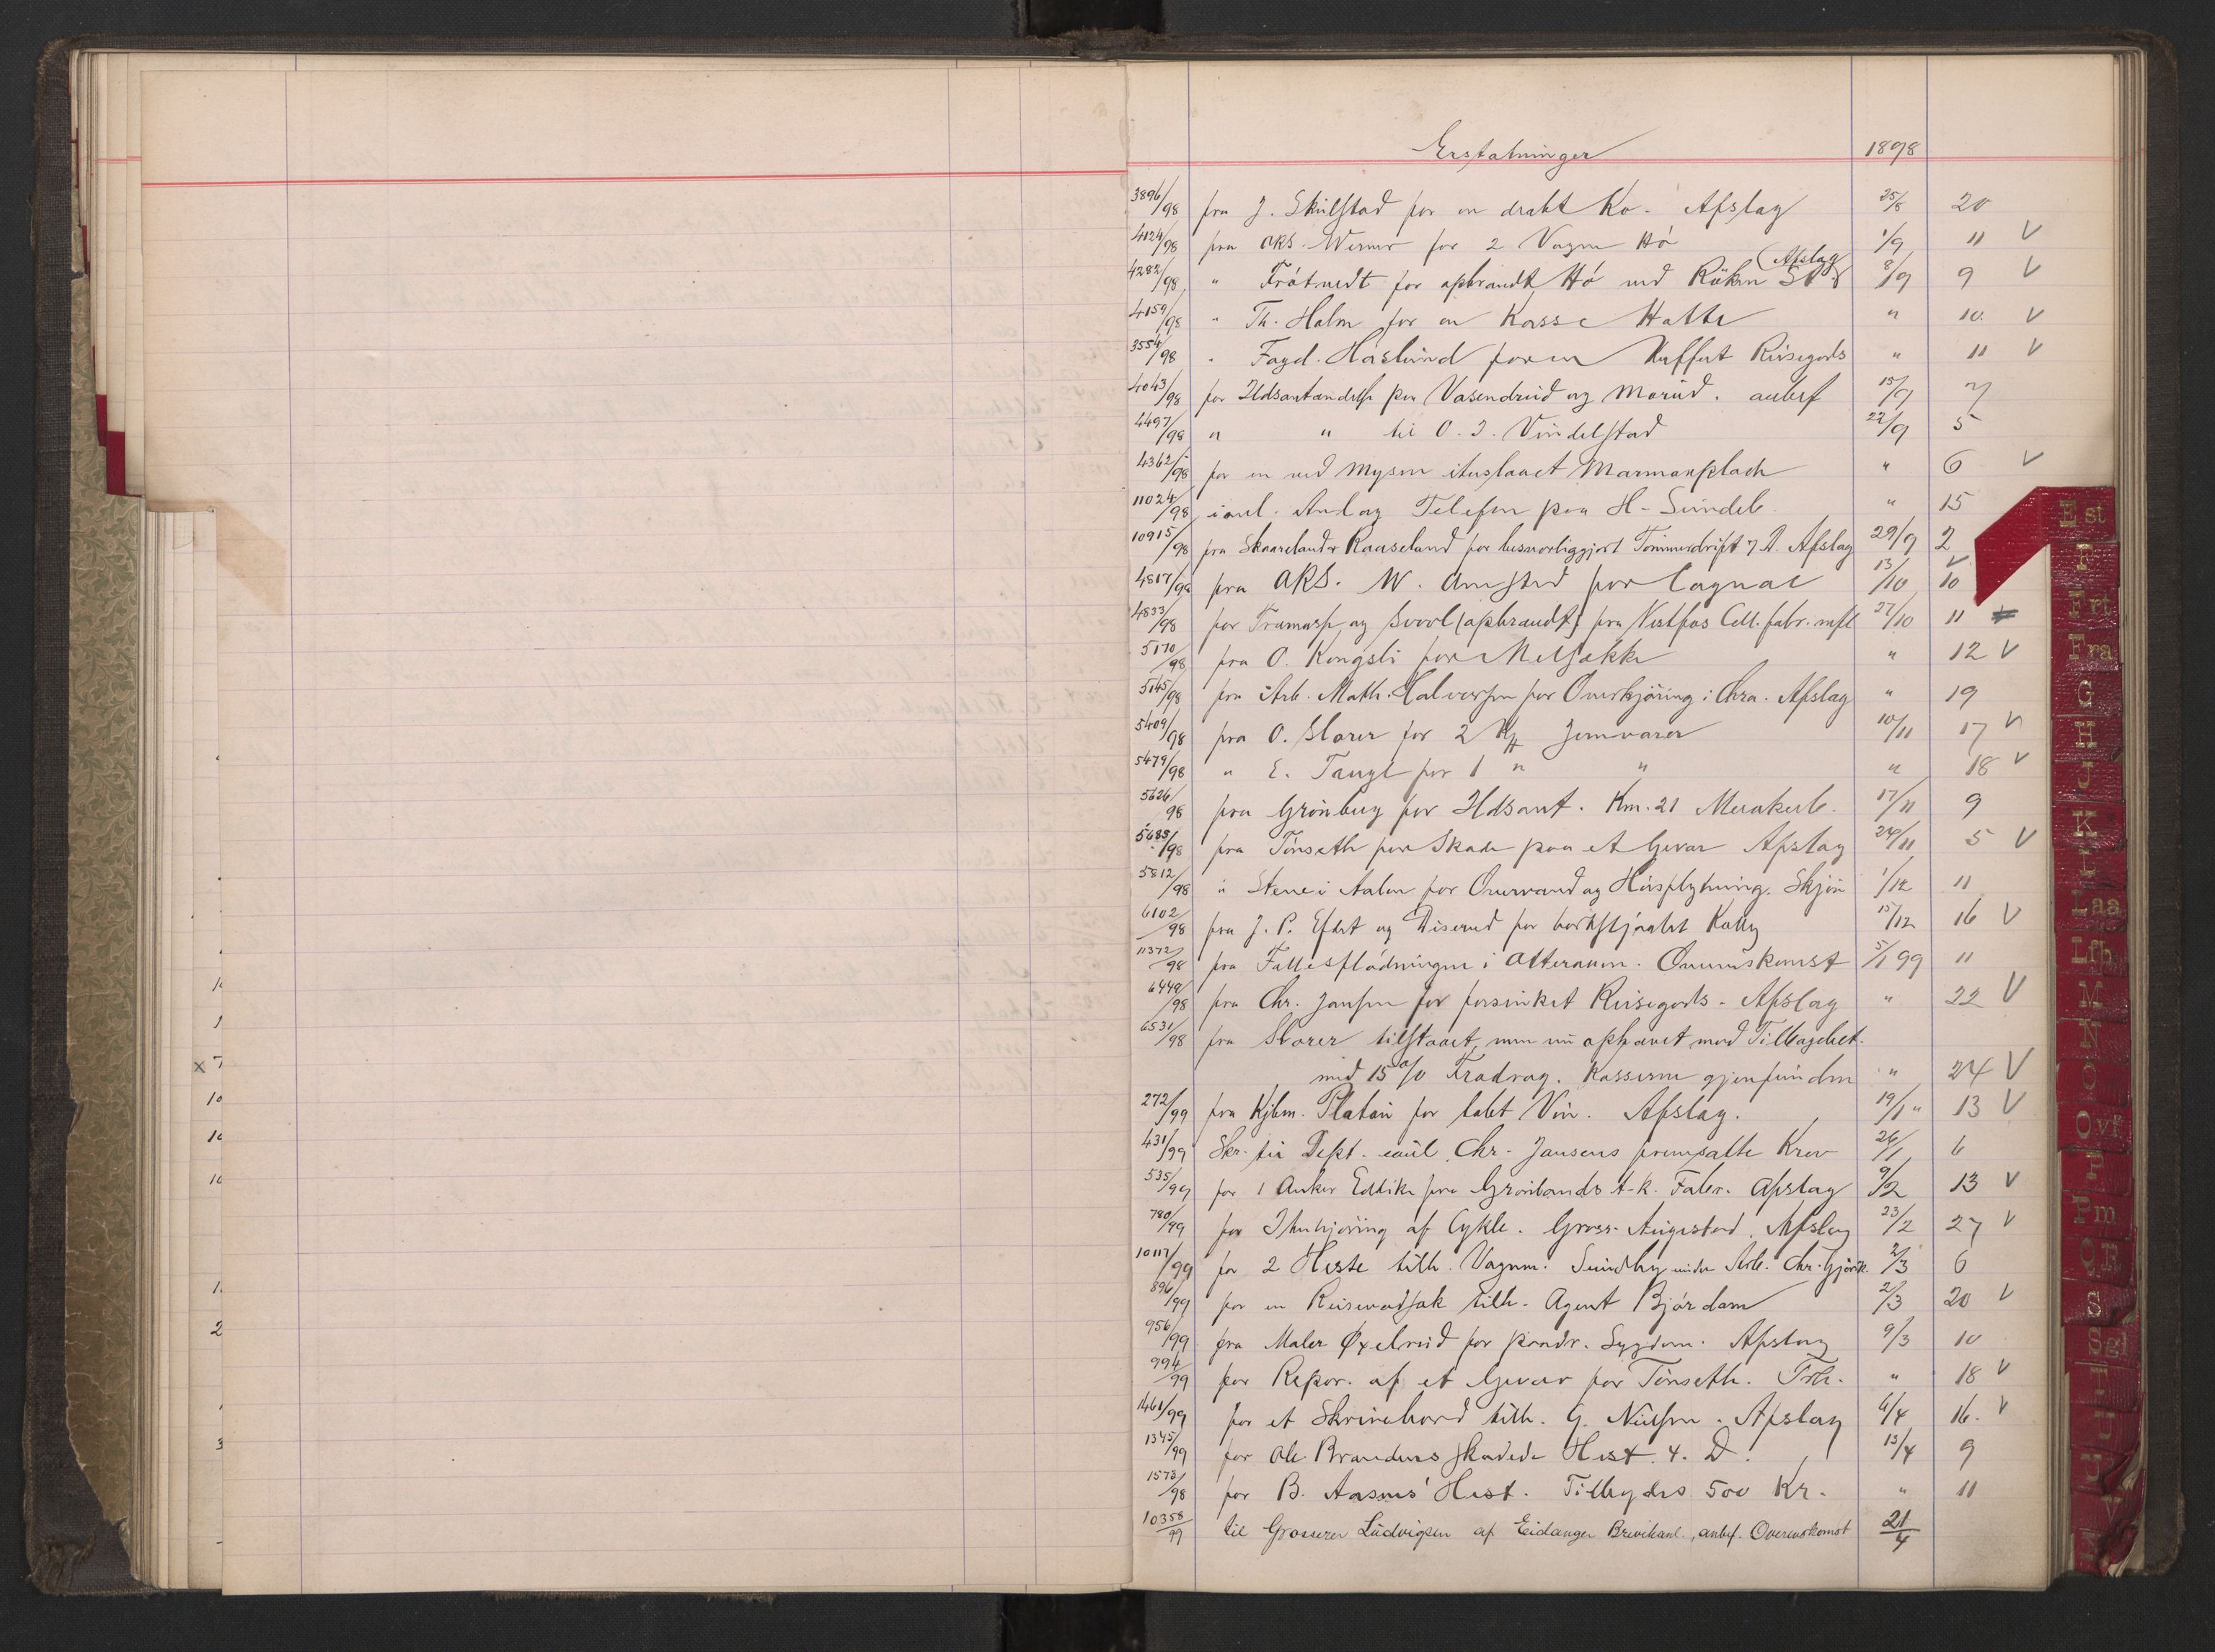 Erstatninger 1898
3896/98 fra J. Skulstad for en dræbt Ko. Afslag 25/8 20
4124/98 fra AKS. Werner for 2 Vogne Hö 1/9 11 V
4282/98 " for opbrændt Hö ved Röken St (Afslag) 8/9 9 V
4159/98 " Th. Holm for en Kasse Hatte " 10. V
3554/98 " Fogd. Haslund for en Kuffert Reisegods " 11 V
4043/98 for Ildsantændelse paa Vasendrud og Morud. anbef 15/9 7
4497/98 " " til O. J. Vindelstad 22/9 5
4362/98 for en ved Mysen ituslaaet Marmorplade " 6 V
11024/98 Anlæg Telefon paa H-Sundeb. " 15
10915/98 fra Skaareland & Kaaseland for besværliggjort Tömmerdrift 7 D. Afslag 29/9 2
4817/98 fra AKS. W. for Cognac 13/10 10 V
4833/98 for Træmasse og Svovl (opbrændt) fra Vestfos Cell. fabr. mfl 27/10 11
5170/98 fra O. Kongsli for Melsække " 12 V
5145/98 fra Arb. Math. Halvorsen for Overkjöring i Chra. Afslag " 19
5409/98 fra O. Storer for 2 Jernvarer 10/11 17 V
5479/98 " E. for 1 " " " 18 V
5626/98 fra Grönberg for Ildsant. Km. 21 Merakerb. 17/11 9
5685/98 fra Tönseth for Skade paa et Gevær Afslag 24/11 5 V
5812/98 " Stene i Aalen for Overvand og Husflytning. Skjön 1/12 11
6102/98 fra J. P. Eftet og Diserud for bortstjaalet 15/12 16 V
11372/98 fra Fællesflödningen i Atteraaen. Overenskomst 5/1 99 11
6449/98 fra Chr. Jansen for forsinket Reisegods. Afslag " 22 V
6531/98 fra Storer tilstaaet, men nu ophævet mod Tilbagebet.
med 15 % Fradrag. Kasserne gjenfunden " 24 V
272/99 fra Kjbm. Platou for tabt Vin. Afslag. 19/1 " 13 V
431/99 Skr. fra Dept. Chr. Jansens fremsatte Krav 26/1 6
535/99 for 1 Anker Eddike fra Grönlands A-k. Fabr. Afslag 9/2 13 V
780/99 for Ituskjöring af Cykle. Gross. Augestad. Afslag 23/2 27 V
10117/99 for 2 Heste tilh. Vognm. Sundby under Arb. Chr. Gjövik. 2/3 6
896/99 for en Reisevadsæk tilh. Agent Björdam 2/3 20 V
956/99 fra Maler Øxelrud for Sygdom. Afslag 9/3 10
994/99 for Repar. af et Gevær for Tönseth. Trh. " 18 V
1461/99 for et Skrivebord tilh. G. Nielsen. Afslag 6/4 16. V
1345/99 for Ole Brandens skadede Hest. 4. D. 13/4 9
1573/98 for B. Aasens Hest. Tilbydes 500 Kr. " 11
10358/99 til Grosserer Ludvigsen af Eidanger Brevikanl., anbef. Overenskomst 21/4
Est
F
Frt
Fra
G
H
J
K
L
Laa
Lfb
M
N
O
Ovf
P
Pm
Q R
S
Sgl
T
U
V